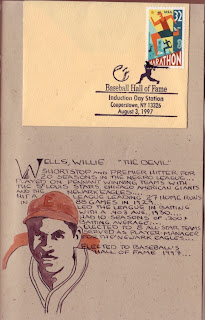 32
USA
MARATHON
Baseball Hall of Fame
Induction Day Station
Cooperstown, NY 13326
August 3, 1997
WELLS, WILLIE "THE DEVIL"
SHORTSTOP AND PREMIER HITTER FOR
20 SEASONS IN THE NEGRO LEAGUE...
PLAYED ON PENNANT WINNING TEAMS WITH
THE ST. LOUIS STARS, CHICAGO AMERICAN GIANTS
AND THE NEWARK EAGLES...
HIT A LEAGUE LEADING 27 HOME RUNS
IN 88 GAMES IN 1929
LED THE LEAGUE IN BATTING
WITH A .403 AVE, 1930...
HAD 10 SEASONS OF .300+
BATTING AVERAGE...
ELECTED TO 8 ALL STAR TEAMS
SERVED AS PLAYER MANAGER
FOR THE NEWARK EAGLES...
ELECTED TO BASEBALL'S
HALL OF FAME 1997...